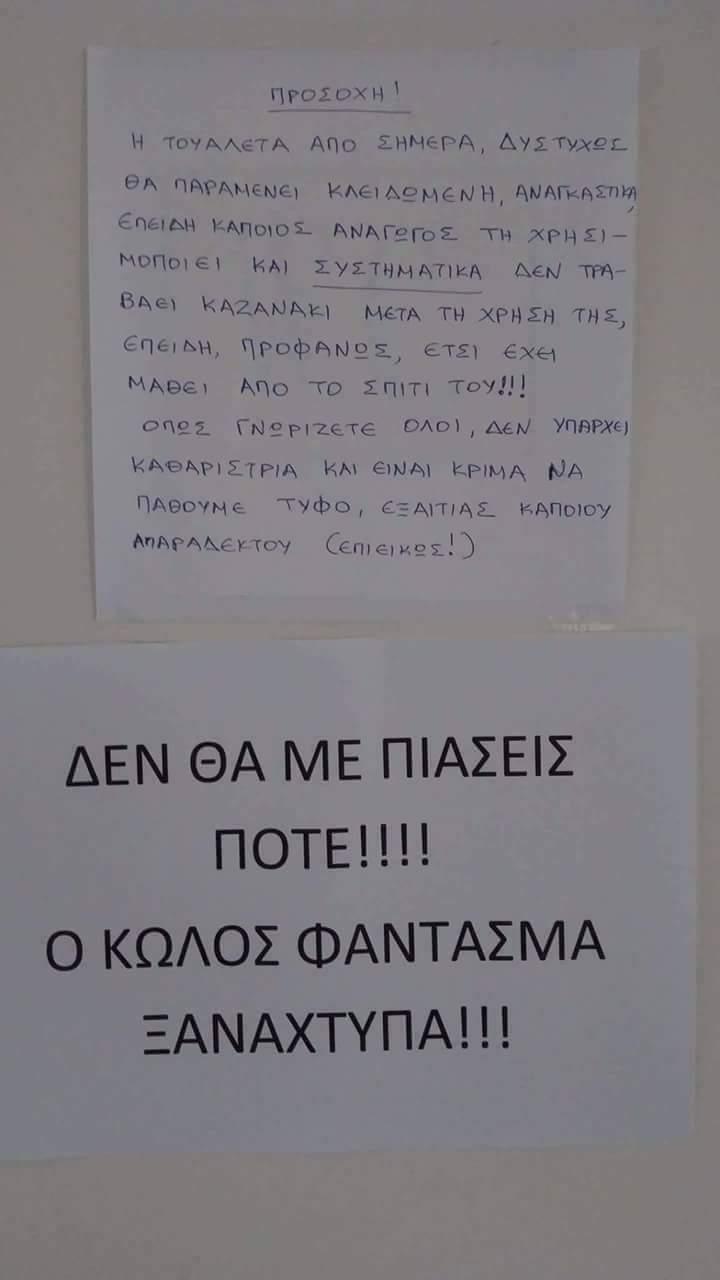 ΠΡΟΣΟΧΗ!
Η ΤΟΥΑΛΕΤΑ ΑΠΟ ΣΗΜΕΡΑ, ΔΥΣΤΥΧΩΣ
ΘΑ ΠΑΡΑΜΕΝΕΙ ΚΛΕΙΔΩΜΕΝΗ, ΑΝΑΓΚΑΣΤΙΚΑ,
ΕΠΕΙΔΗ ΚΑΠΟΙΟΣ ΑΝΑΓΩΓΟΣ ΤΗ ΧΡΗΣΙ-
ΜΟΠΟΙΕΙ ΚΑΙ ΣΥΣΤΗΜΑΤΙΚΑ ΔΕΝ ΤΡΑ-
ΒΑΕΙ ΚΑΖΑΝΑΚΙ ΜΕΤΑ ΤΗ ΧΡΗΣΗ ΤΗΣ,
ΕΠΕΙΔΗ, ΠΡΟΦΑΝΩΣ, ΕΤΣΙ ΕΧΕΙ
ΜΑΘΕΙ ΑΠΟ ΤΟ ΣΠΙΤΙ ΤΟΥ!!!
ΟΠΩΣ ΓΝΩΡΙΖΕΤΕ ΟΛΟΙ, ΔΕΝ ΥΠΑΡΧΕΙ
ΚΑΘΑΡΙΣΤΡΙΑ ΚΑΙ ΕΙΝΑΙ ΚΡΙΜΑ ΝΑ
ΠΑΘΟΥΜΕ ΤΥΦΟ, ΕΞΑΙΤΙΑΣ ΚΑΠΟΙΟΥ
ΑΠΑΡΑΔΕΚΤΟΥ (ΕΠΙΕΙΚΩΣ!)
ΔΕΝ ΘΑ ΜΕ ΠΙΑΣΕΙΣ
ΠΟΤΕ!!!!
Ο ΚΩΛΟΣ ΦΑΝΤΑΣΜΑ
ΞΑΝΑΧΤΥΠΑ!!!